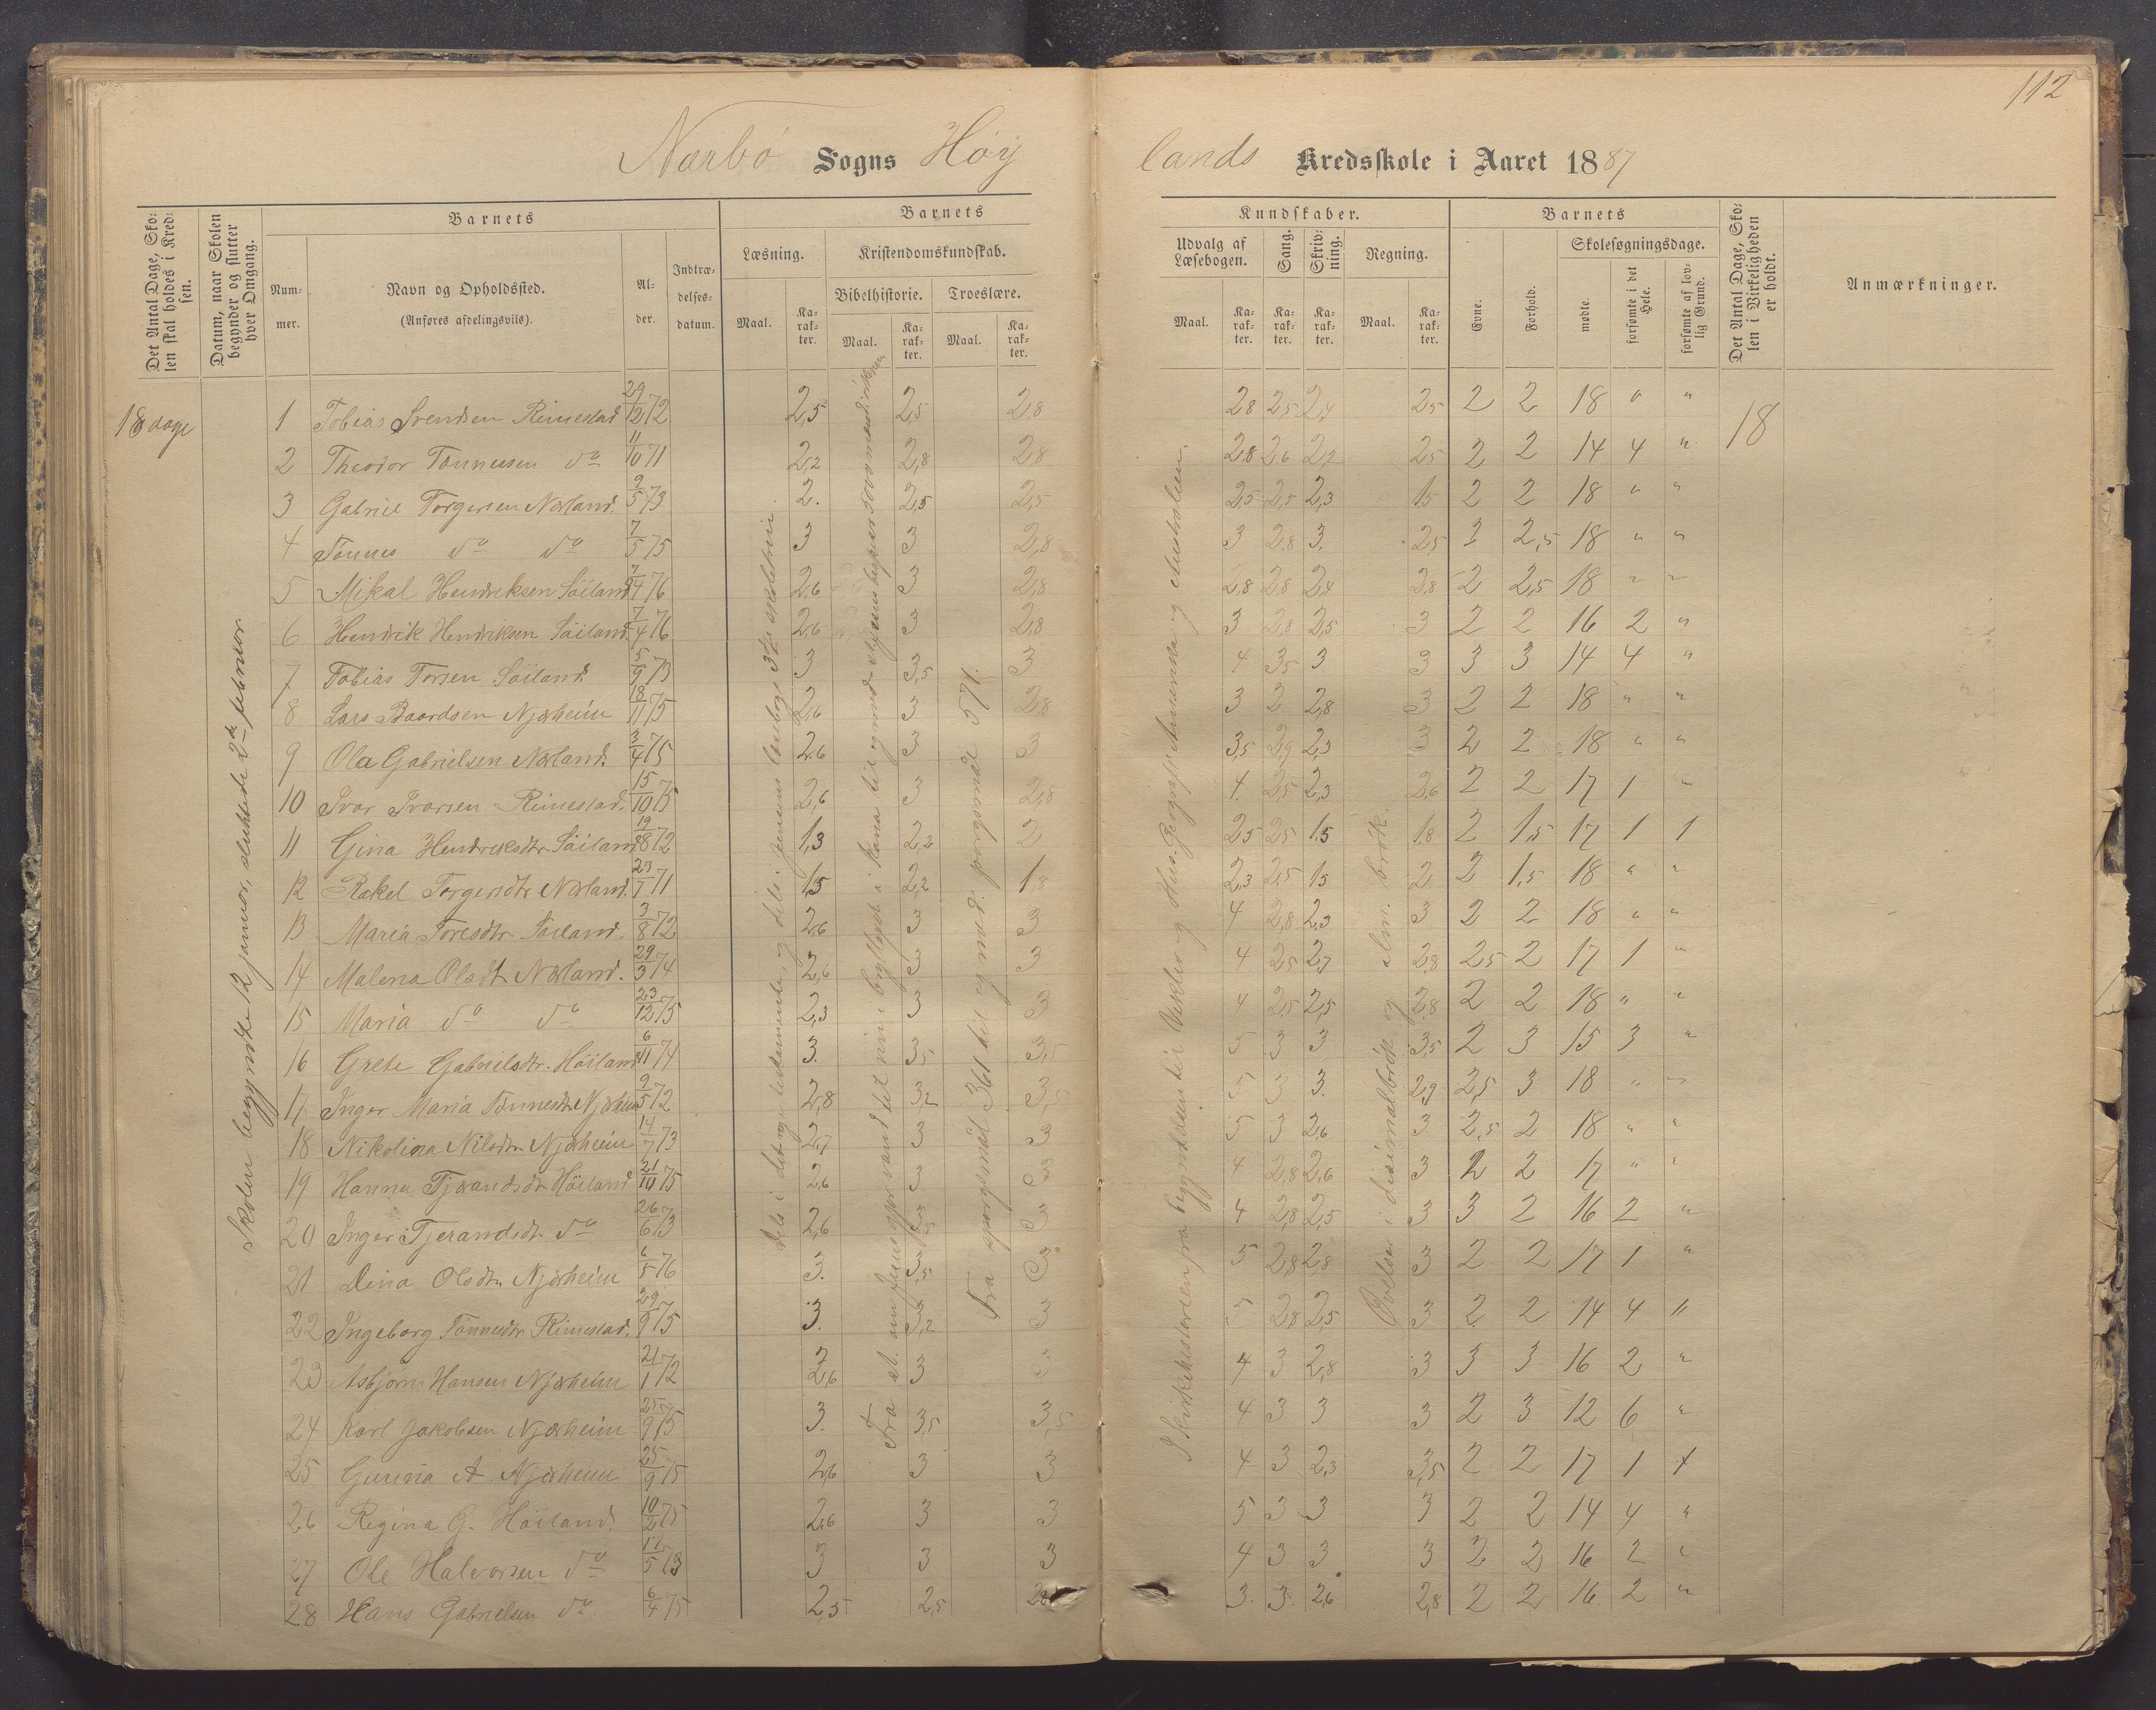 112
Nærbø Sogns Høy lands Kredsskole i Aaret 1887
Det Antal Dage, Skolen skal holdes i Kredsen.
Datum, naar Skolen begynder og slutter hver Omgang.
Barnets
Nummer.
Navn og Opholdssted.
(Anføres afdelingsviis).
Alder.
Indtrædelsesdatum.
Barnets
Læsning.
Kristendomskundskab.
Bibelhistorie.
Troeslære.
Maal.
Karakter.
Maal.
Karakter.
Maal.
Karakter.
Kundskaber.
Udvalg af Læsebogen.
Sang.
Skrivning.
Regning.
Maal.
Karakter.
Karakter.
Karakter.
Maal.
Karakter.
Barnets
Evne.
Forhold.
Skolesøgningsdage.
mødte.
forsømte i det Hele.
forsømte af lovlig Grund.
Det Antal Dage, Skolen i Virkeligheden er holdt.
Anmærkninger.
18 dage
Skolen begyndte 12 januar, sluttede 2de februar.
Fra spørgsmål 361 til og med spørgsmål 571.
Øvelser i desimalbrøk og alm. brøk.
18
1 Tobias Svendsen Rimestad 29/12 72 2,5 2,5 2,8 2,8 2,5 2,4 2,5 2 2 18 " "
2 Theodor Tønnesen do 11/10 71 2,2 2,8 2,8 2,8 2,6 2,2 2,5 2 2 14 4 "
3 Gabriel Torgersen Nærland 9/5 73 2. 2,5 2,5 2,5 2,5 2,3 1,5 2 2 18 " "
4 Tønnes do do 7/5 75 3 3 2,8 3 2,8 3. 2,5 3 2,5 18 " "
5 Mikal Hendriksen Söiland 7/4 76 2,6 3 2,8 2,8 2,8 2,4 2,8 2 2,5 18 " "
6 Hendrik Hendriksen Söiland 7/4 76 2,6 3 2,8 3 2,8 2,5 3 2 2 16 2 "
7 Tobias Torsen Söiland 5/9 73 3 3,5 3 4 3,5 3 3 3 3 14 4 "
8 Lars Baardsen Njærheim 18/11 75 2,6 3 2,8 3 2 2,8 3 2 2 18 " "
9 Ola Gabrielsen Nærland 3/4 75 2,6 3 3 3,5 2,9 2,3 3 2 2 18 " "
10 Ivar Ivarsen Rimestad 15/10 75 2,6 3 2,8 4. 2,5 2,3 2,6 2 2 17 1 "
11 Gina Hendriksdtr Söiland 19/8 72 1,3 2,2 2 2,5 2,5 1,5 1,8 2 1,5 17 1 1
12 Rakel Torgersdtr Nærland 23/7 71 1,5 2,2 1,8 2,3 2,5 1,5 2 2 1,5 18 " "
13 Maria Toresdtr Söiland 3/8 72 2,6 3 3 4 2,8 2,3 3 2 2 18 " "
14 Malena Olsdt Nærland 29/3 74 2,6 3 3 4 2,5 2,7 2,8 2,5 2 17 1 "
15 Maria do do 23/12 75 2,3 3 3 4 2,5 2,5 2,8 2 2 18 " "
16 Grete Gabrielsdtr Höiland 6/11 74 3. 3,5 3,5 5 3 3 3,5 2 3 15 3 "
17 Inger Maria Tönnesdtr Njærheim 9/5 72 2,8 3,2 3,5 5 3 3. 2,9 2,5 3 18 " "
18 Nikolina Nilsdtr Njærheim 14/7 73 2,7 3 3 5 3 2,6 3 2,5 2 18 " "
19 Hanna Tjærandsdtr Höiland 21/10 75 2,6 3 3 4 2,8 2,6 3 2 2 17 " "
20 Inger Tjerandsdt do 26/6 73 2,6 3,5 3 4 2,8 2,5 3 3 2 16 2 "
21 Dina Olsdtr Njærheim 6/5 76 3. 3,5 3 5 2,8 2,8 3 2 2 17 1 "
22 Ingeborg Tönnesdtr Rimestad 29/9 75 3. 3,2 3 5 2,8 2,5 3 2 2 14 4 "
23 Asbjørn Hansen Njærheim 21/1 72 2,6 3 3 4 3 2,8 3 3 3 16 2 "
24 Karl Jakobsen Njærheim 25/9 75 3. 3,5 3,5 4 3 3 3 2 3 12 6 "
25 Gurina A. Njærheim 25/9 75 2,6 3 3 4 3 2,3 3,5 2 2 17 1 1
26 Regina G. Höiland 10/2 75 2,6 3 3 5 3 3 3 2 2 14 4 "
27 Ole Halvorsen do 17/5 73 3 3 3 4 3 3 3 2 2 16 2 "
28 Hans Gabrielsen do 6/4 75 2,5 2,5 2,8 3. 3. 2,6 2,8 2 2 16 2 "